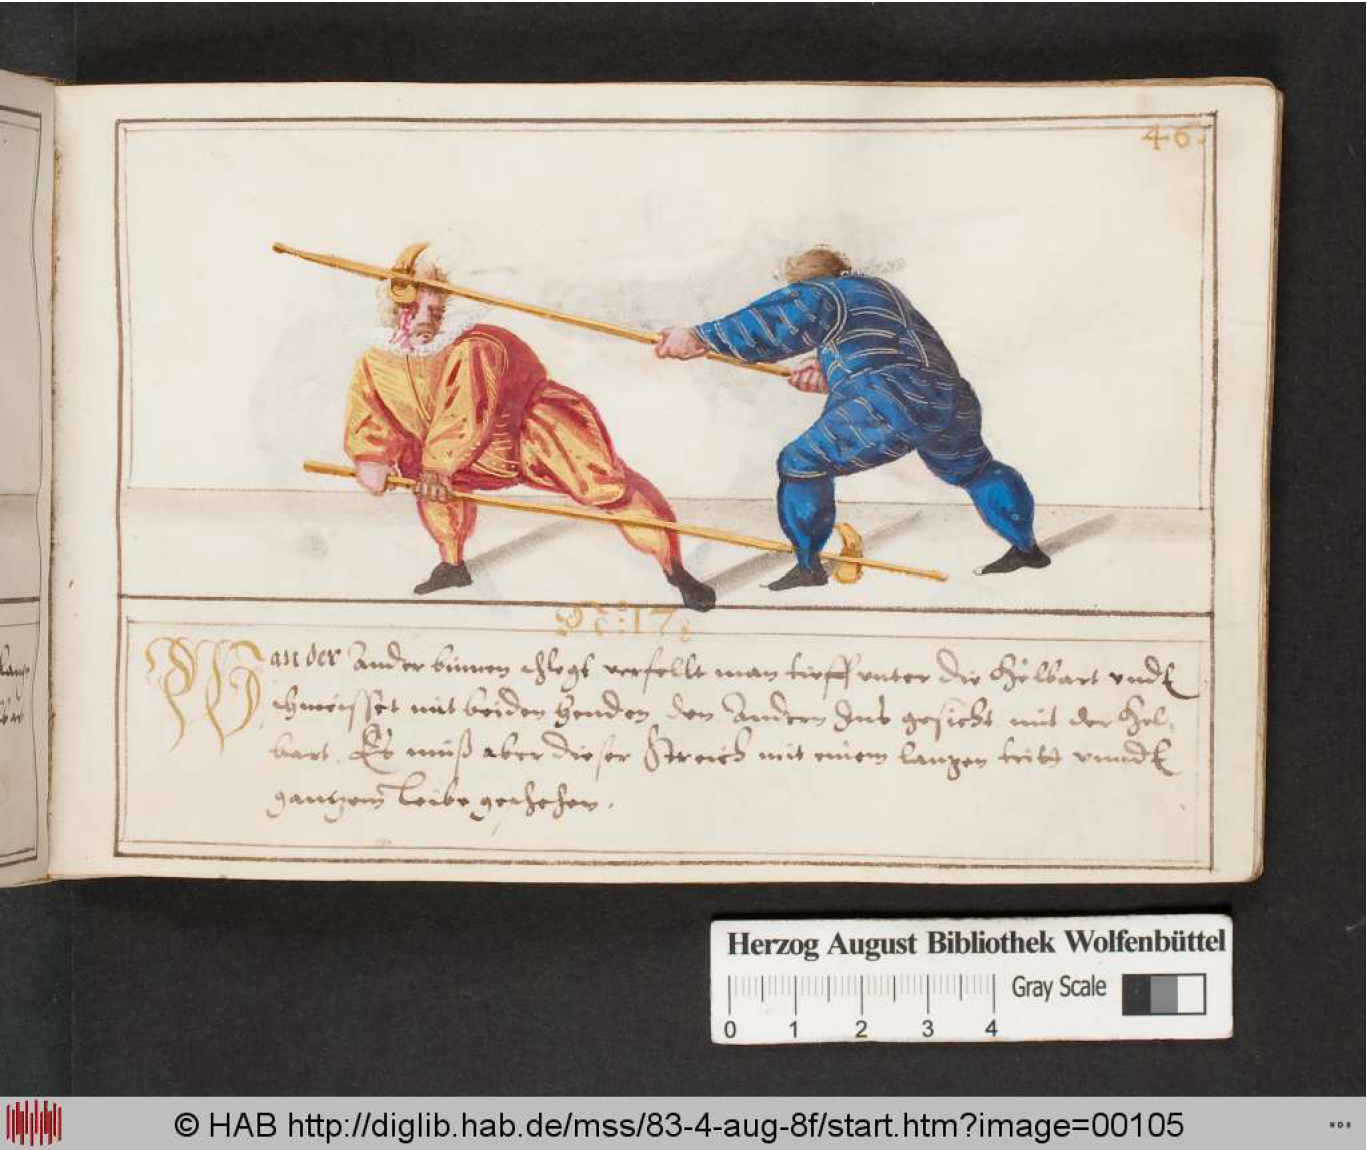 46
N: 17
Wan der Ander binnen schlegt verfellt man tieff vnter die Helbart vndt
schmeisset mit beiden henden den Andern Ins gesicht mit der Hel-
bart. Es muß aber dieser Streich mit einem langen tritt vnndt
gantzem leibe geschehen.
Herzog August Bibliothek Wolfenbüttel
Gray Scale
0 1 2 3 4
© HAB http://diglib.hab.de/mss/83-4-aug-8f/start.htm?image=00105